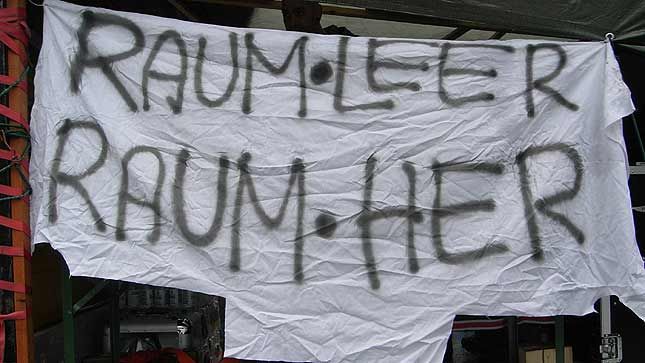 RAUM·LEER
RAUM·HER